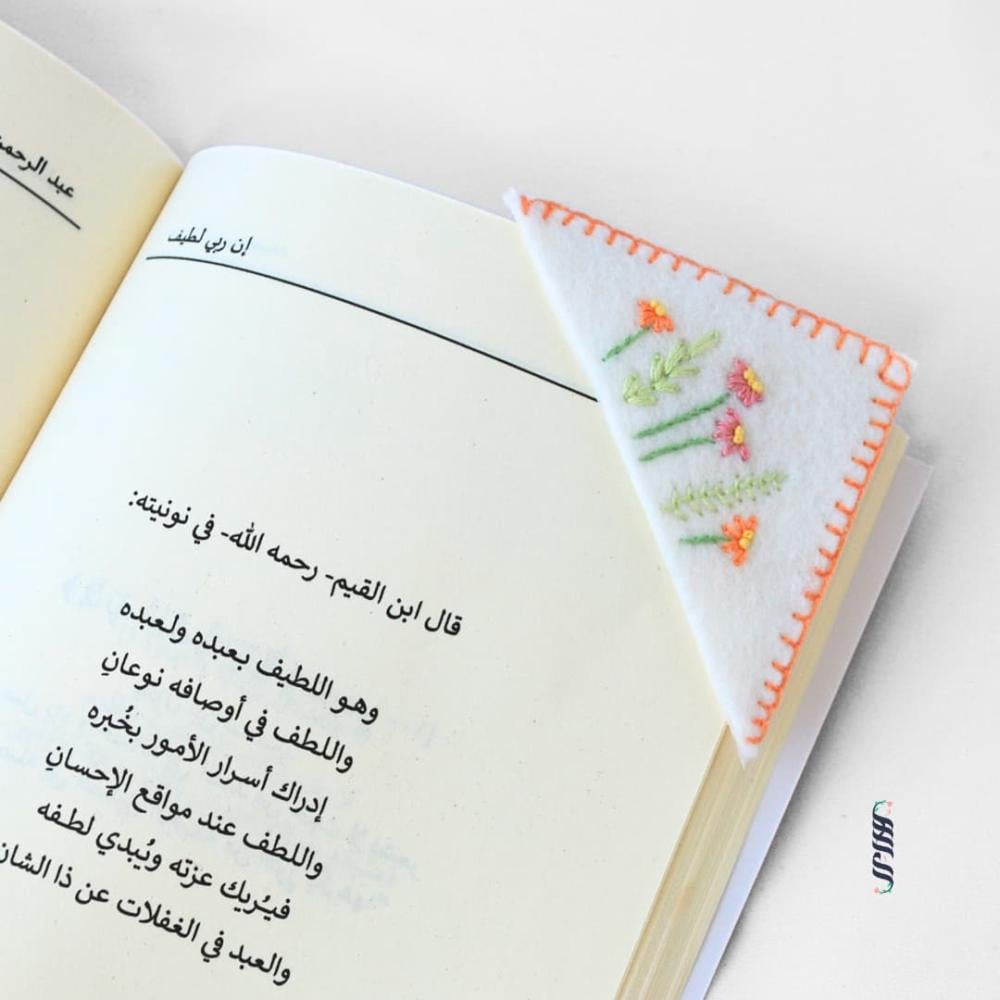 إن ربي لطيف
قال ابن القيم- رحمه الله- في نونيته:
وهو اللطيف بعبده ولعبده
واللطف في أوصافه نوعانِ
إدراك أسرار الأمور بخُبره
واللطف عند مواقع الإحسانِ
فيُريك عزته ويُبدي لطفه
والعبد في الغفلات عن ذا الشان
عبد الرحمن